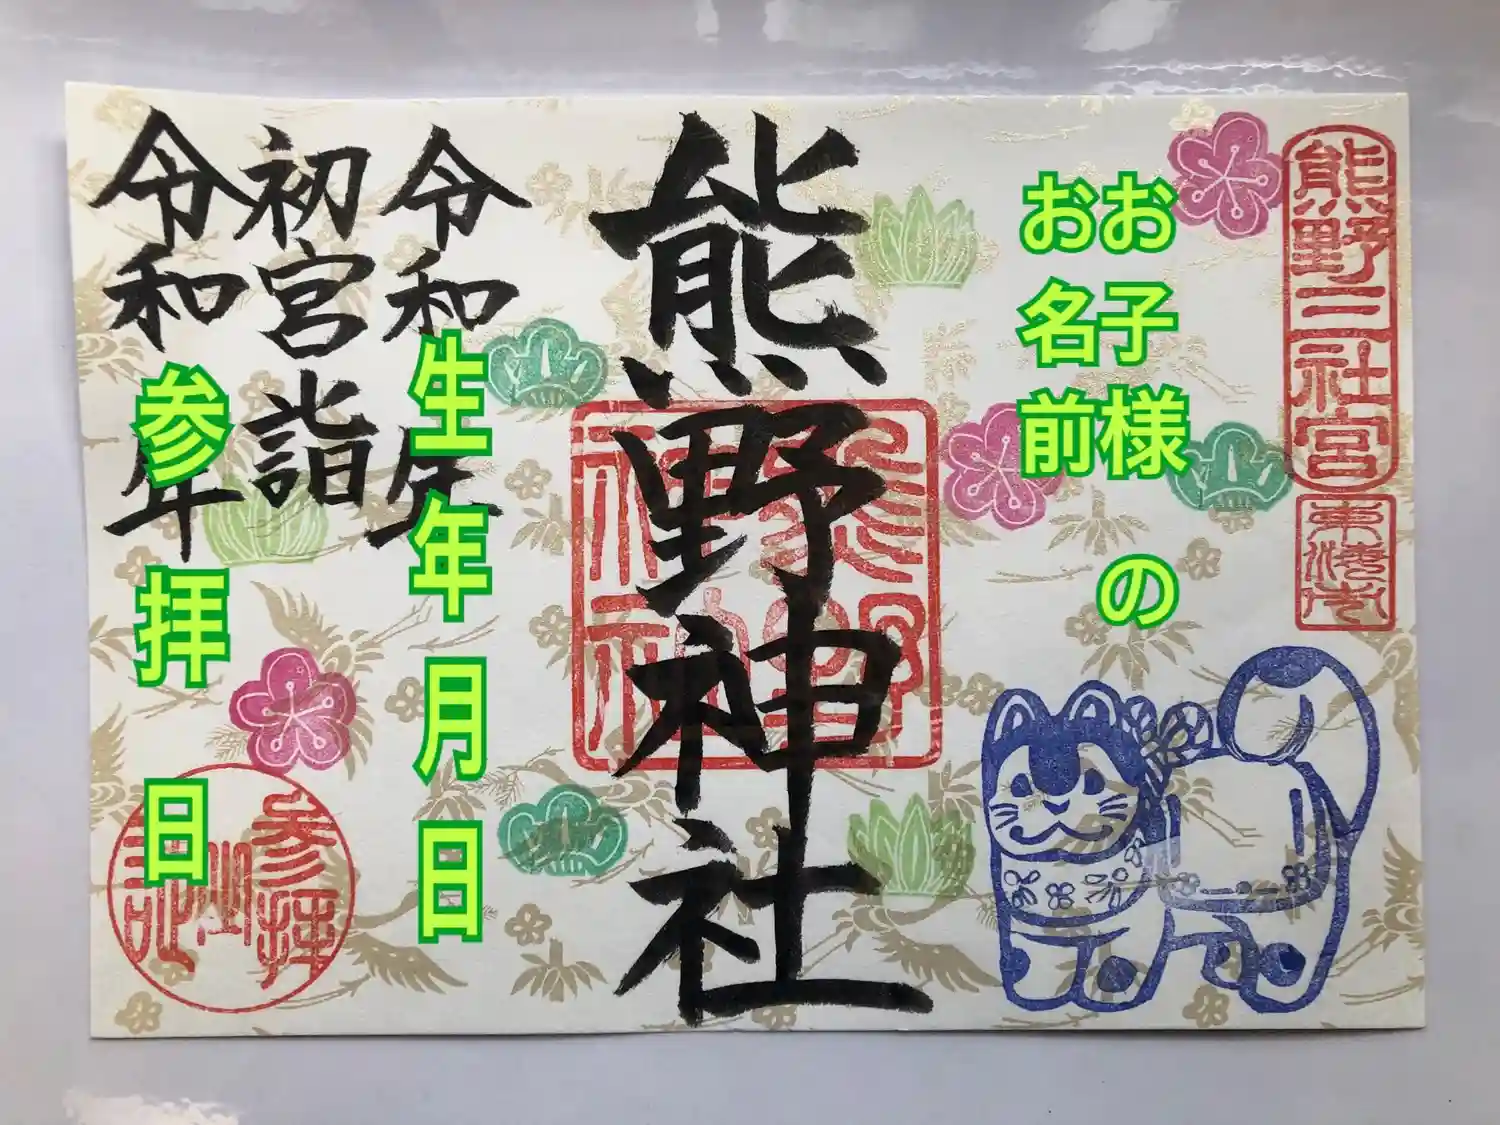 熊野三社宮
お子様の
お名前
熊野神社
熊野神社
令和 年
生年月日
初宮詣
令和 年
参拝日
参拝
之
記